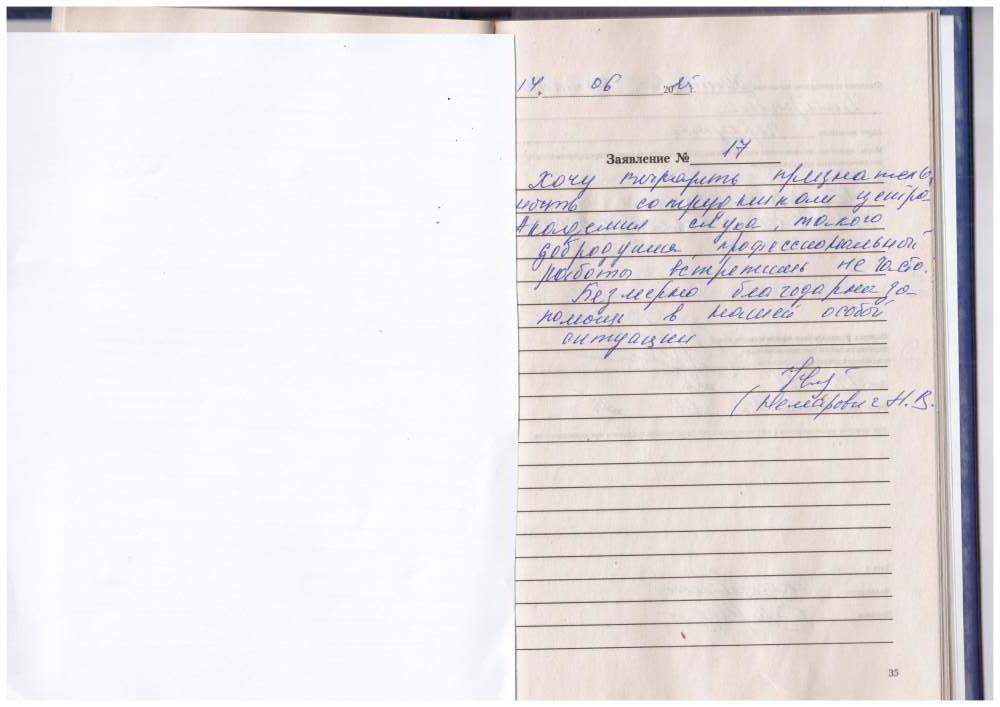 14. 06 20
Заявление № 17
Хочу выразить признатель-
ность сотрудникам центра
Академия слуха, такого
добродушия, профессиональной
работы встретишь не часто.
Безмерно благодарна за
помощь в нашей особой
ситуации
Н.В.
35